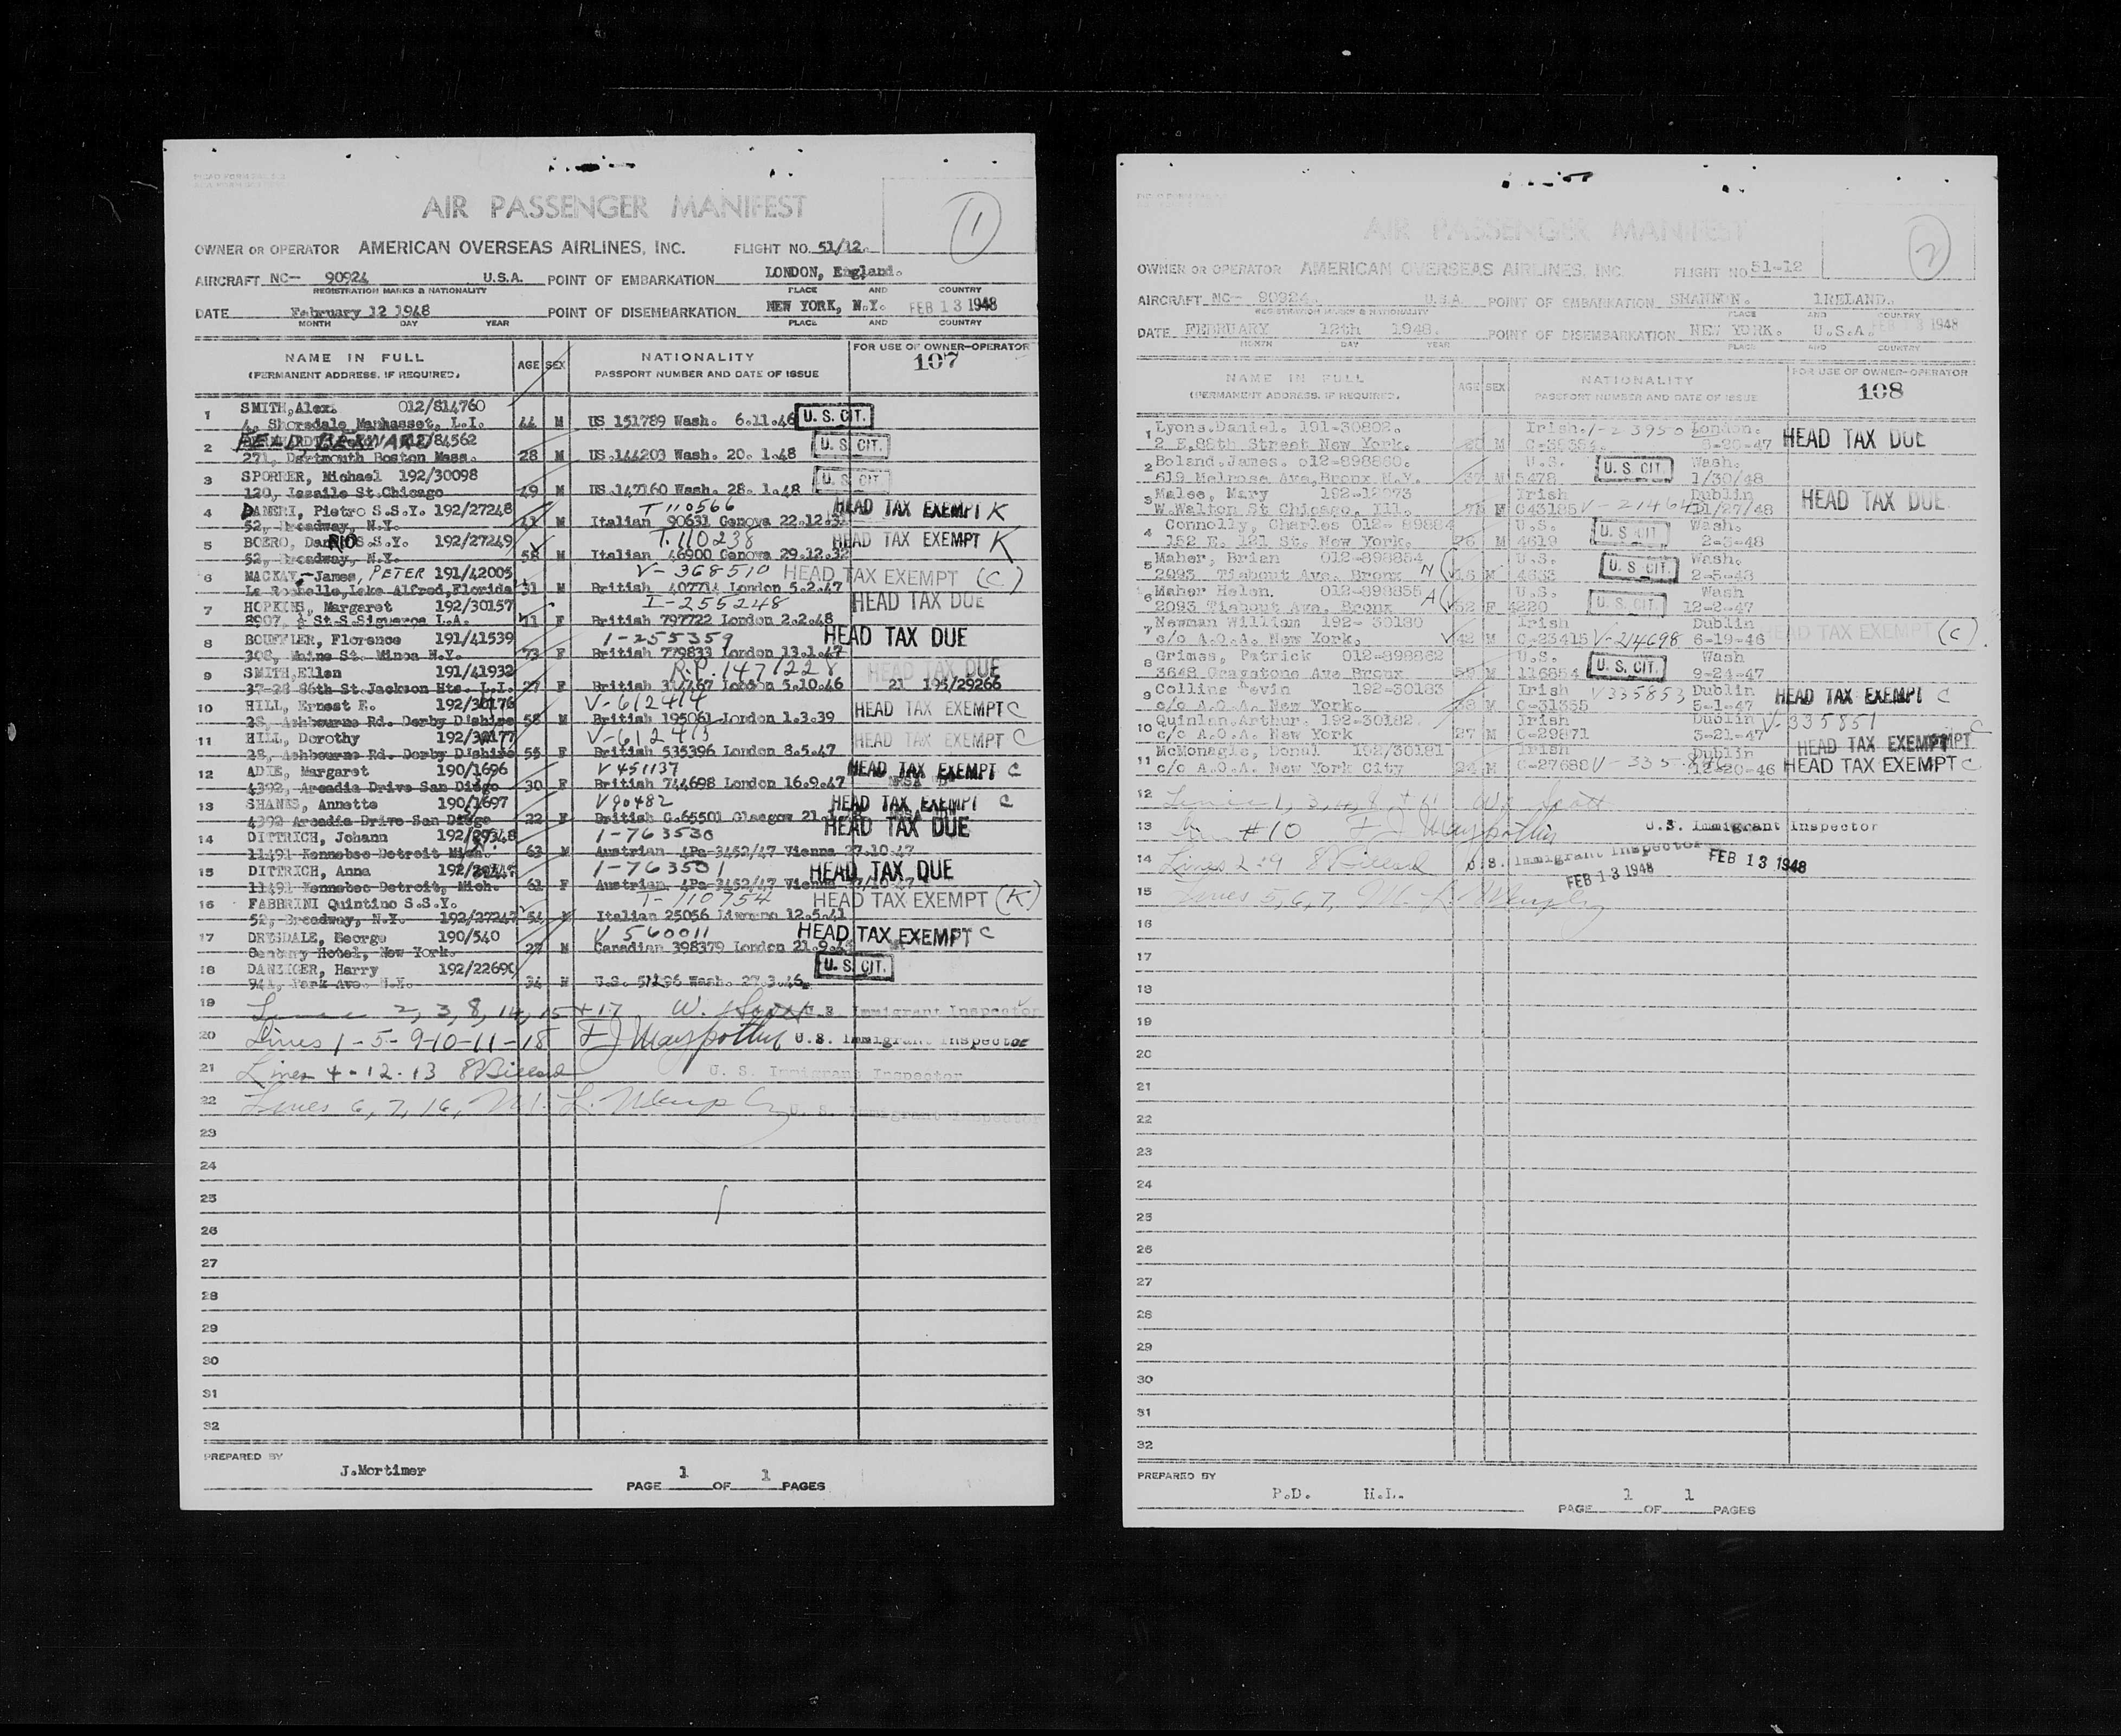 AIR PASSENGER MANIFEST
1
OWNER OR OPERATOR AMERICAN OVERSEAS AIRLINES, INC. FLIGHT NO. 51/12.
AIRCRAFT NC- 90924 U.S.A. POINT OF EMBARKATION LONDON, England.
REGISTRATION MARKS & NATIONALITY PLACE AND COUNTRY
DATE February 12 1948 POINT OF DISEMBARKATION NEW YORK, N.Y. FEB 13 1948
MONTH DAY YEAR PLACE AND COUNTRY
NAME IN FULL AGE SEX NATIONALITY FOR USE OF OWNER-OPERATOR
(PERMANENT ADDRESS, IF REQUIRED) PASSPORT NUMBER AND DATE OF ISSUE 107
1 SMITH, Alex. 012/814760
4, Shoredale, Manhasset, L.I. 44 M US 151789 Wash. 6.11.46 U. S. CIT.
2 /84562
271, Dartmouth Boston Mass. 28 M US.144203 Wash. 20. 1.48 U. S. CIT.
3 SPORRER, Michael 192/30098
120, Lasalle St.Chicago 49 M US.147160 Wash. 28. 1.48 U. S. CIT.
4 DANERI, Pietro S.S.Y. 192/27248 T 110566 HEAD TAX EXEMPT K
52, Broadway, N.Y. M Italian 90631 Genova 22.12.
5 BOERO, DaRIO S.S.Y. 192/27249 T.110238 HEAD TAX EXEMPT K
52, Broadway, N.Y. 58 M Italian 46900 Genova 29.12.32
6 MACKAY, James, PETER 191/42005 V-368510 HEAD TAX EXEMPT (C)
La Rochelle, Lake Alfred, Florida 31 M British 407714 London 5.2.47
7 HOPKINS, Margaret 192/30157 I-255248 HEAD TAX DUE
8907, St.S.Sigueroa L.A. 71 F British 797722 London 2.2.48
8 BOUFFLER, Florence 191/41539 1-255359 HEAD TAX DUE
308, Maine St. Minoa N.Y. 73 F British 779833 London 13.1.47
9 SMITH, Ellen 191/41932 R.P. 1471228 HEAD TAX DUE
37-28 86th St.Jackson Hts. L.I. 27 F British 314467 London 5.10.46 21 195/29266
10 HILL, Ernest E. 192/30176 V-612414 HEAD TAX EXEMPT C
28, Ashbourne Rd. Derby D'shire 58 M British 195061 London 1.3.39
11 HILL, Dorothy 192/30177 V-612413 HEAD TAX EXEMPT C
28, Ashbourne Rd. Derby D'shire 55 F British 535396 London 8.5.47
12 ADIE, Margaret 190/1696 V 451137 HEAD TAX EXEMPT C
4392, Arcadia Drive San Diego 30 F British 744698 London 16.9.47
13 SHANKS, Annette 190/1697 V90482 HEAD TAX EXEMPT C
4392 Arcadia Drive San Diego 22 F British C.65501 Glasgow 21
14 DITTRICH, Johann 192/29348 1-763530 HEAD TAX DUE
11491 Kennebec Detroit Mich. 63 M Austrian 4Pa-3452/47 Vienna 27.10.47
15 DITTRICH, Anna 1-763501 HEAD TAX DUE
11491 Kennebec Detroit, Mich. 61 F Austrian 4Pa-3452/47 Vienna
16 FABBRINI Quintino S.S.Y. T-110754 HEAD TAX EXEMPT (K)
52, Broadway, N.Y. 192/27247 54 M Italian 25056 Livorno 12.5.41
17 DRYSDALE, George 190/540 V 560011 HEAD TAX EXEMPT C
Hotel, New York. 27 M Canadian 398379 London 21.9.
18 DANZIGER, Harry 192/22690 U. S. CIT.
941, Park Ave. N.Y. 34 M U.S. 51296 Wash. 27.3.46.
19 Lines 2, 3, 8, 14, 15 + 17 W. Scott U.S. Immigrant Inspector
20 Lines 1-5-9-10-11-18 U.S. Immigrant Inspector
21 Lines 4-12-13 U. S. Immigrant Inspector
22 Lines 6, 7, 16, U. S. Immigrant Inspector
23
24
25
26
27
28
29
30
31
32
PREPARED BY
J.Mortimer
PAGE 1 OF 1 PAGES
AIR PASSENGER MANIFEST
2
OWNER OR OPERATOR AMERICAN OVERSEAS AIRLINES, INC. FLIGHT NO 51-12
AIRCRAFT NC- 90924. U.S.A. POINT OF EMBARKATION SHANNON. IRELAND.
REGISTRATION MARKS & NATIONALITY PLACE AND COUNTRY
DATE FEBRUARY 12th 1948. POINT OF DISEMBARKATION NEW YORK. U.S.A. FEB 13 1948
MONTH DAY YEAR PLACE AND COUNTRY
NAME IN FULL AGE SEX NATIONALITY FOR USE OF OWNER-OPERATOR
(PERMANENT ADDRESS, IF REQUIRED) PASSPORT NUMBER AND DATE OF ISSUE 108
1 Lyons.Daniel. 191-30802. Irish. London.
2 E,88th Street New York. M -20-47 HEAD TAX DUE
2 Boland,James. 012-898860. U.S. Wash.
619 Melrose Ave,Bronx N.Y. 37 M 5478 U. S. CIT. 1/30/48
3 Malee, Mary 192-12073 Irish Dublin HEAD TAX DUE
W.Walton St Chicago, Ill. F C43185
4 Connolly, Charles 012- 89884 U.S. Wash.
152 E. 121 St. New York. 76 M 4619 U. S. CIT 2-5-48
5 Maher, Brian 012-898854 U.S. Wash.
2093 Tiebout Ave. Bronx M 4633 U. S. CIT. 2-5-48
6 Maher Helen. 012-898855 U.S. Wash
2093 Tiebout Ave. Bronx 52 F 4220 U. S. CIT. 12-2-47
7 Newman William 192- 30180 Dublin
c/o A.O.A. New York. 42 M C-23415 V-214698 6-19-46 HEAD TAX EXEMPT (C)
8 Grimes, Patrick 012-898862 U.S. Wash
3648 Graystone Ave Bronx M 116854 U. S. CIT. 9-24-47
9 Collins Kevin 192-30183 Irish V335853 Dublin HEAD TAX EXEMPT C
c/o A.O.A. New York. M C-31355 5-1-47
10 Quinlan.Arthur. 192-30182. Irish Dublin V-335851 C
c/o A.O.A. New York 27 M C-29871 3-21-47 HEAD TAX EXEMPT
11 McMonagle, Donal 192/30181 Irish Dublin
c/o A.O.A. New York City 24 M C-27688 12-20-46 HEAD TAX EXEMPT C
12
13 #10 U.S. Immigrant Inspector
14 Lines 2 : 9 U.S. Immigrant Inspector FEB 13 1948
FEB 13 1948
15 Lines 5, 6, 7,
16
17
18
19
20
21
22
23
24
25
26
27
28
29
30
31
32
PREPARED BY
P.D. H.L.
PAGE 1 OF 1 PAGES